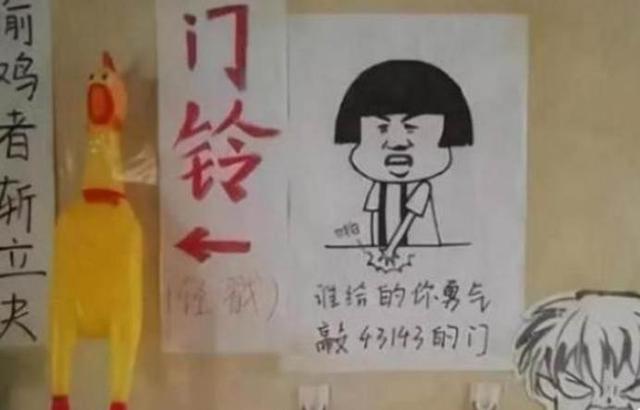 偷鸡者斩立决
门铃
(轻戳)
啪
谁给的你勇气
敲43143的门